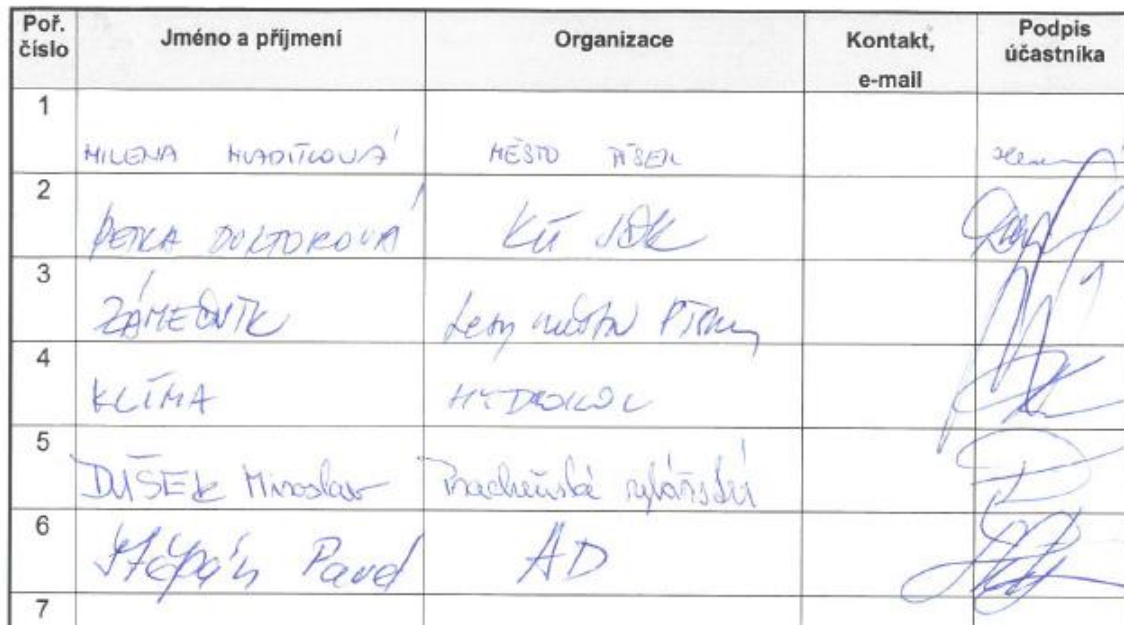 Poř. číslo Jméno a příjmení Organizace Kontakt, e-mail Podpis účastníka
1 MILENA MĚSTO PÍSEK
2 PETRA DOKTOROVÁ KÚ JČK
3 ZÁMEČNÍK Lesy města Písku
4 KLÍMA
5 DUŠEK Miroslav Prácheňské rybářství
6 Štěpán Pavel AD
7